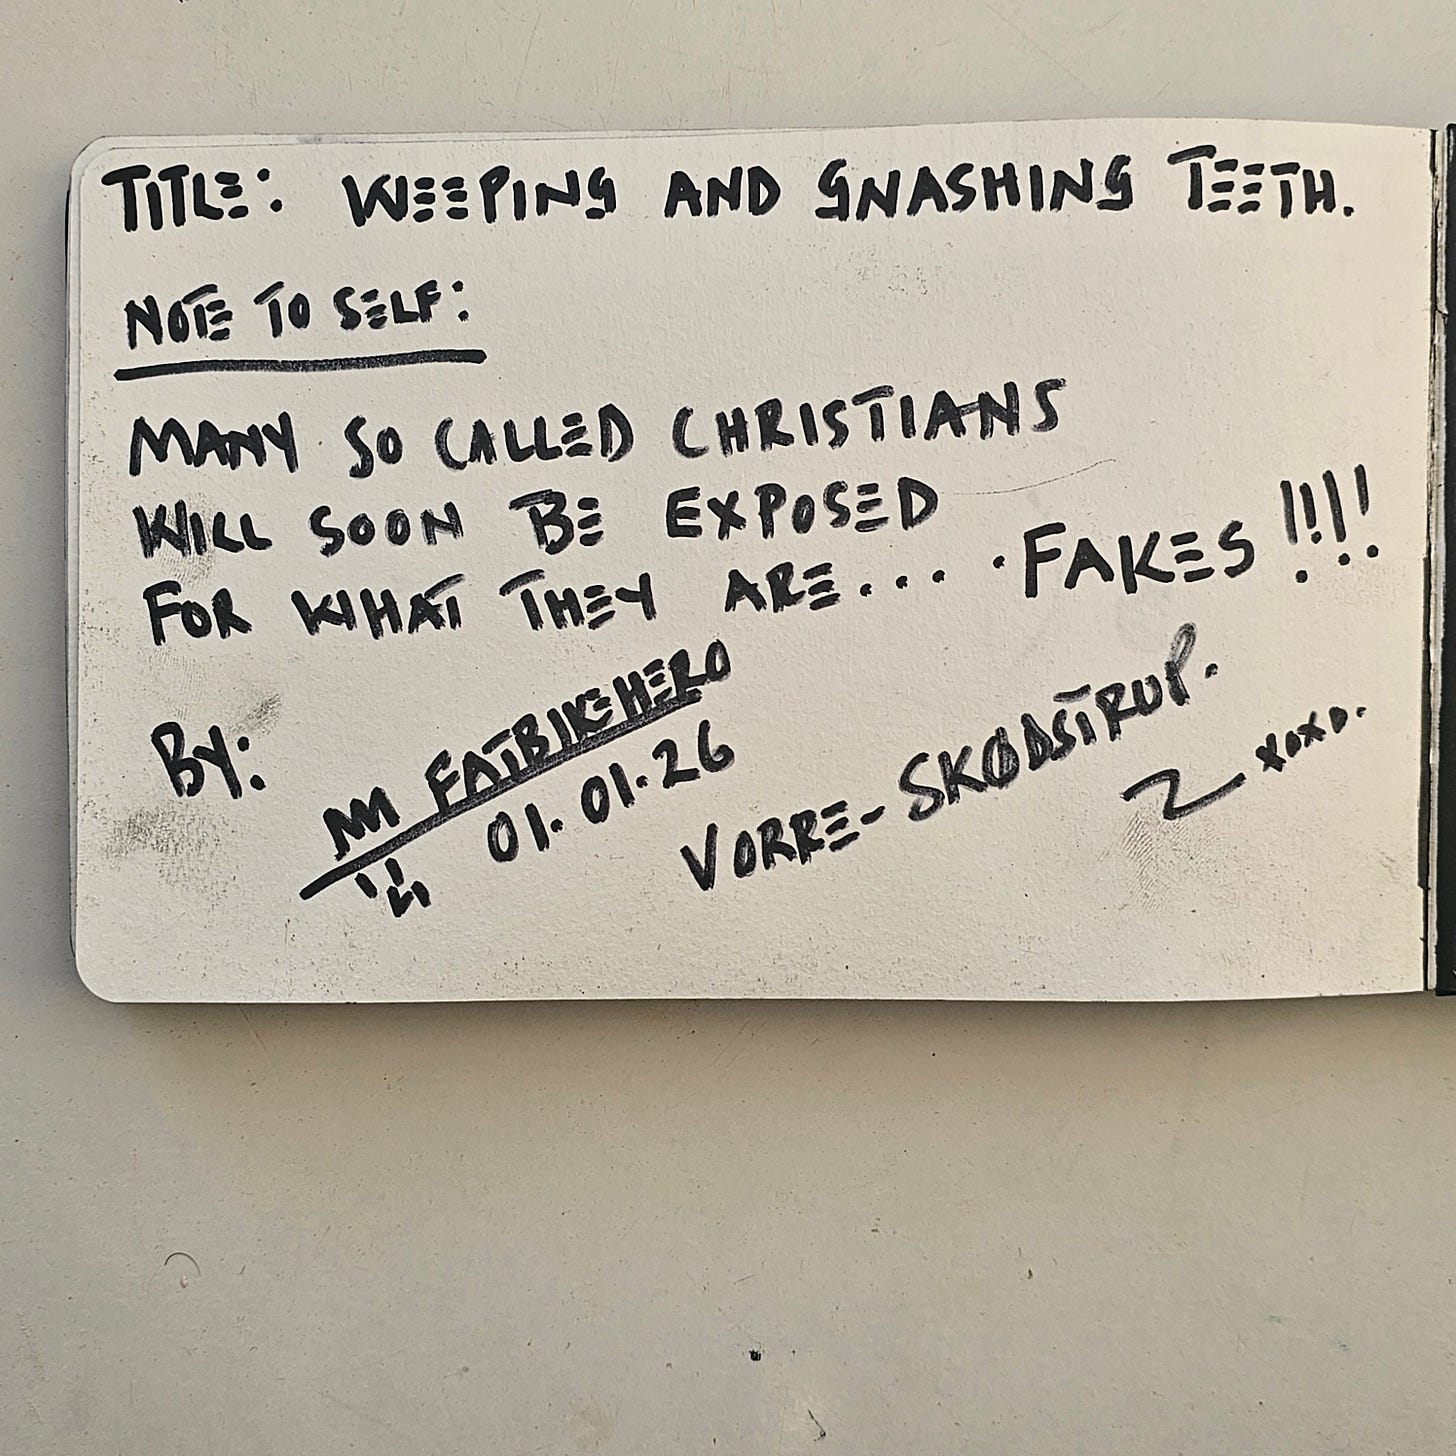 TITLE: WEEPING AND GNASHING TEETH.
NOTE TO SELF:
MANY SO CALLED CHRISTIANS
WILL SOON BE EXPOSED
FOR WHAT THEY ARE... .FAKES !!!!
By: FATBIKEHERO
01.01.26
VORRE-SKØDSTRUP.
xoxo.